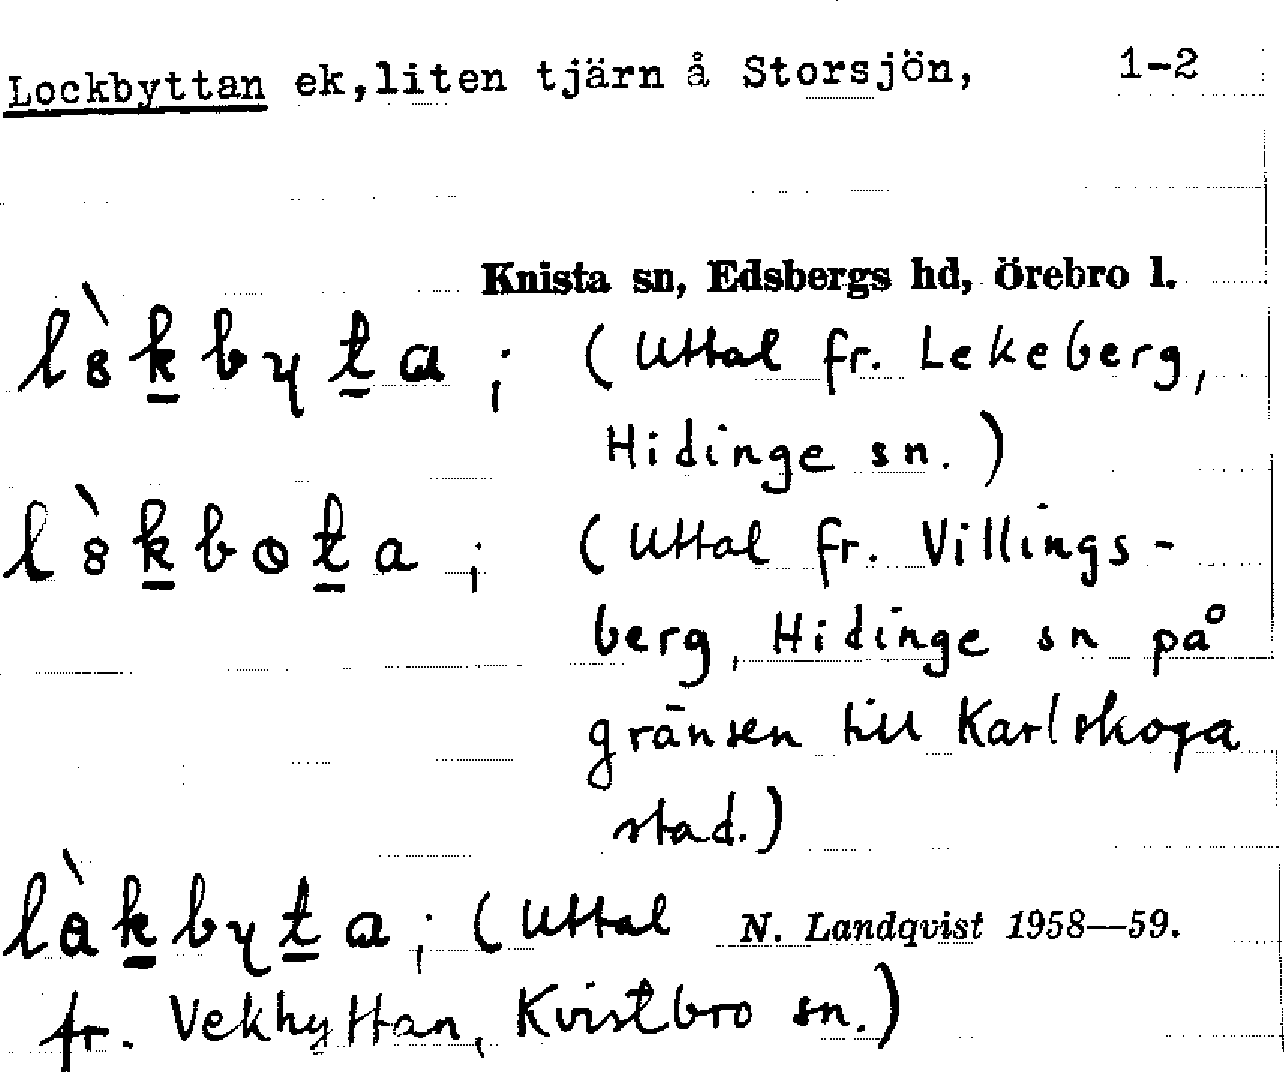 Lockbyttan ek, liten tjärn å Storsjön, 1-2
Knista sn, Edsbergs hd, Örebro l.
lòkbyta; (Uttal fr. Lekeberg,
Hidinge sn.)
(Uttal fr. Villings-
berg, Hidinge sn på
gränsen till Karlskoga
stad.)
làkbyta; (Uttal N. Landqvist 1958—59.
fr. Vekhyttan, Kvistbro sn.)